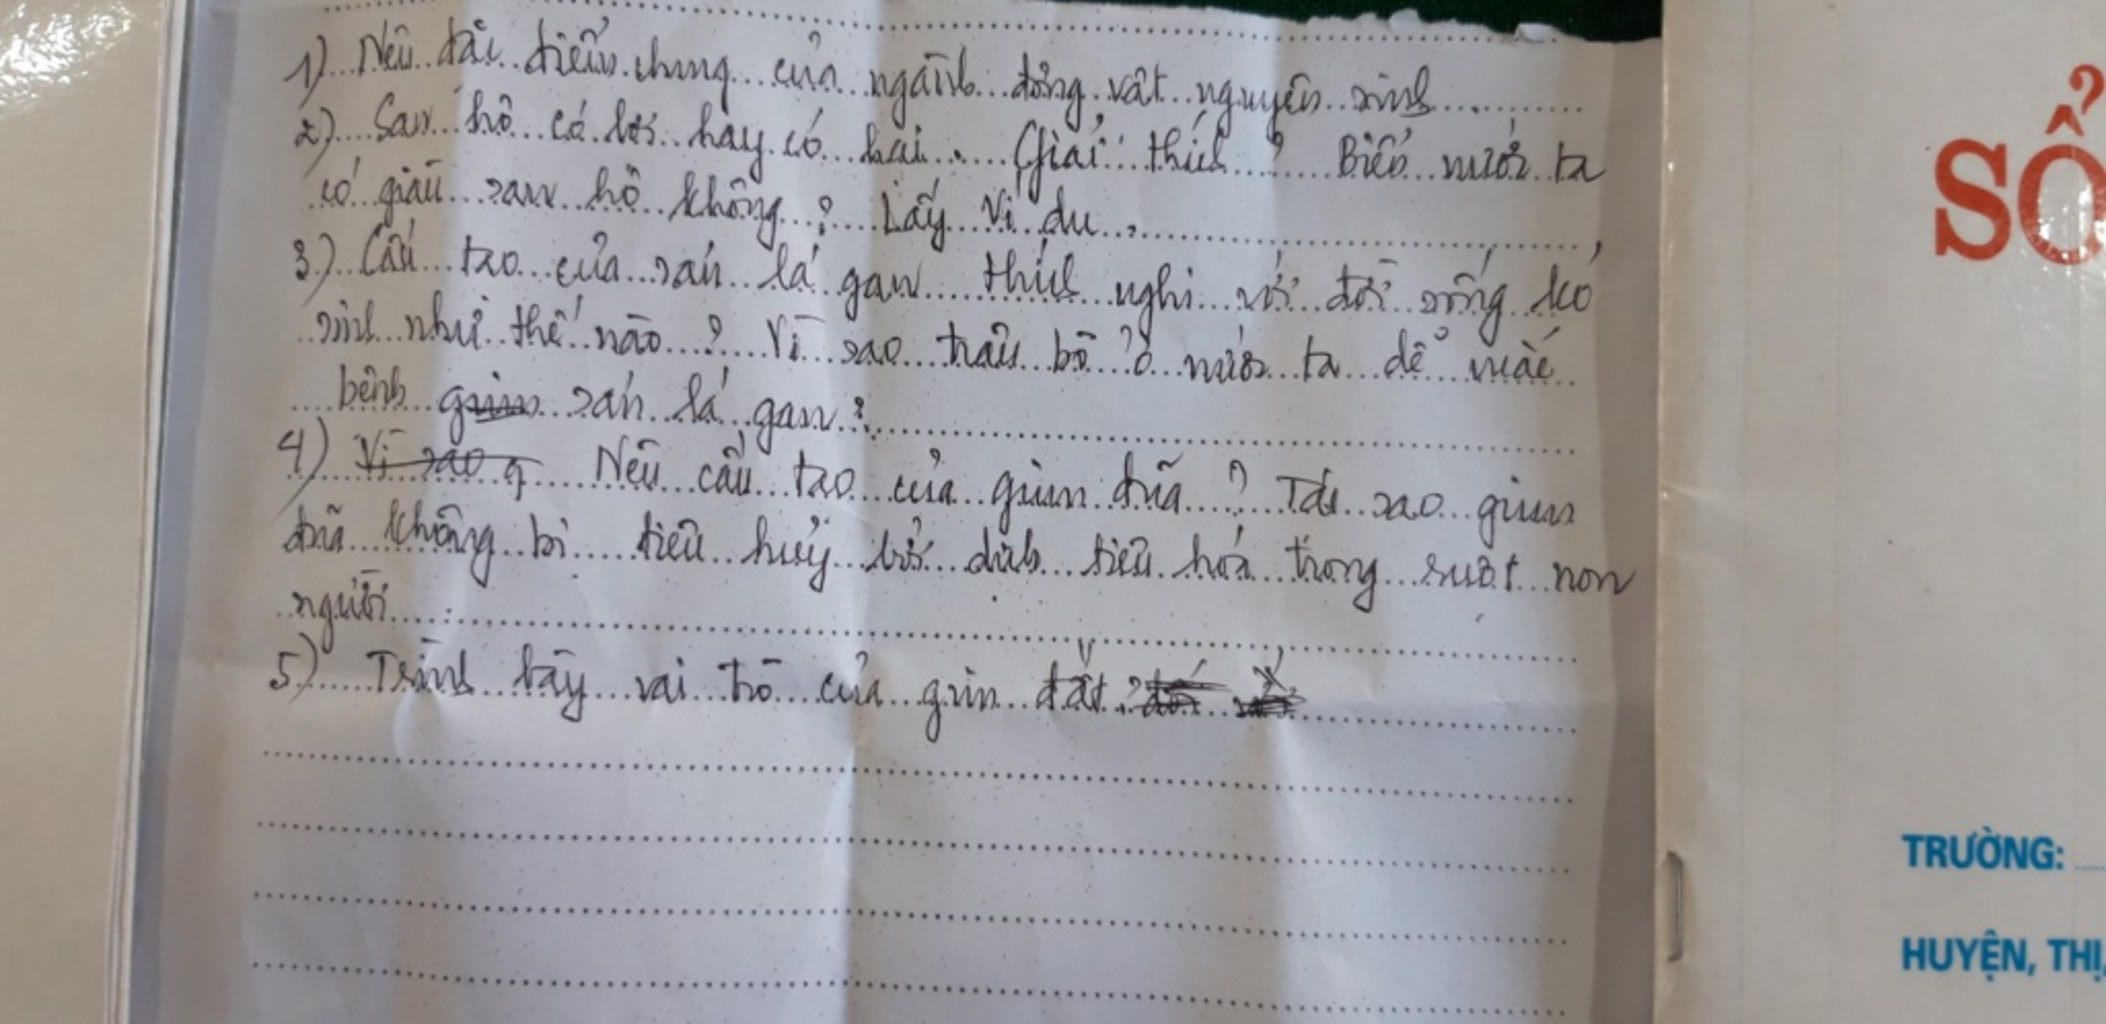 1) Nêu đặc điểm chung của ngành động vật nguyên sinh
2) San hô có lợi hay có hại. Giải thích? Biển nước ta
có giàu san hô không? Lấy ví dụ.
3) Cấu tạo của sán lá gan thích nghi với đời sống kó
sinh như thế nào? Vì sao trâu bò ở nước ta dễ mắc
bệnh giun sán lá gan?
4) Vì sao g Nêu cấu tạo của giun đũa? Tại sao giun
đũa không bị tiêu huỷ bởi dịch tiêu hoá trong ruột non
người.
5) Trình bày vai trò của giun đất?
SỔ
TRƯỜNG:
HUYỆN, THỊ,